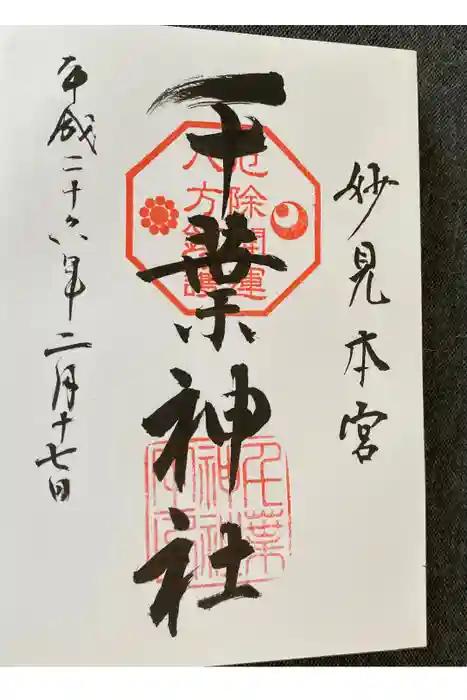 妙見本宮
千葉神社
平成二十六年二月十七日
厄除開運
八方鎮護
千葉
神社